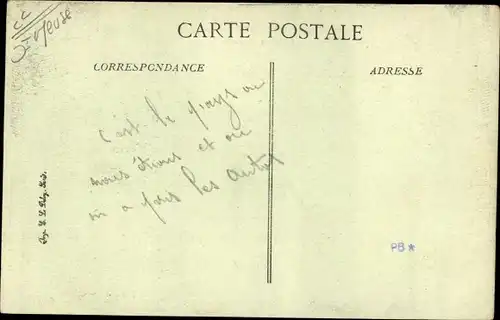 CARTE POSTALE
CORRESPONDANCE
ADRESSE
c'est le pays ou
nous étions et ou
on a pris les autos
PB*